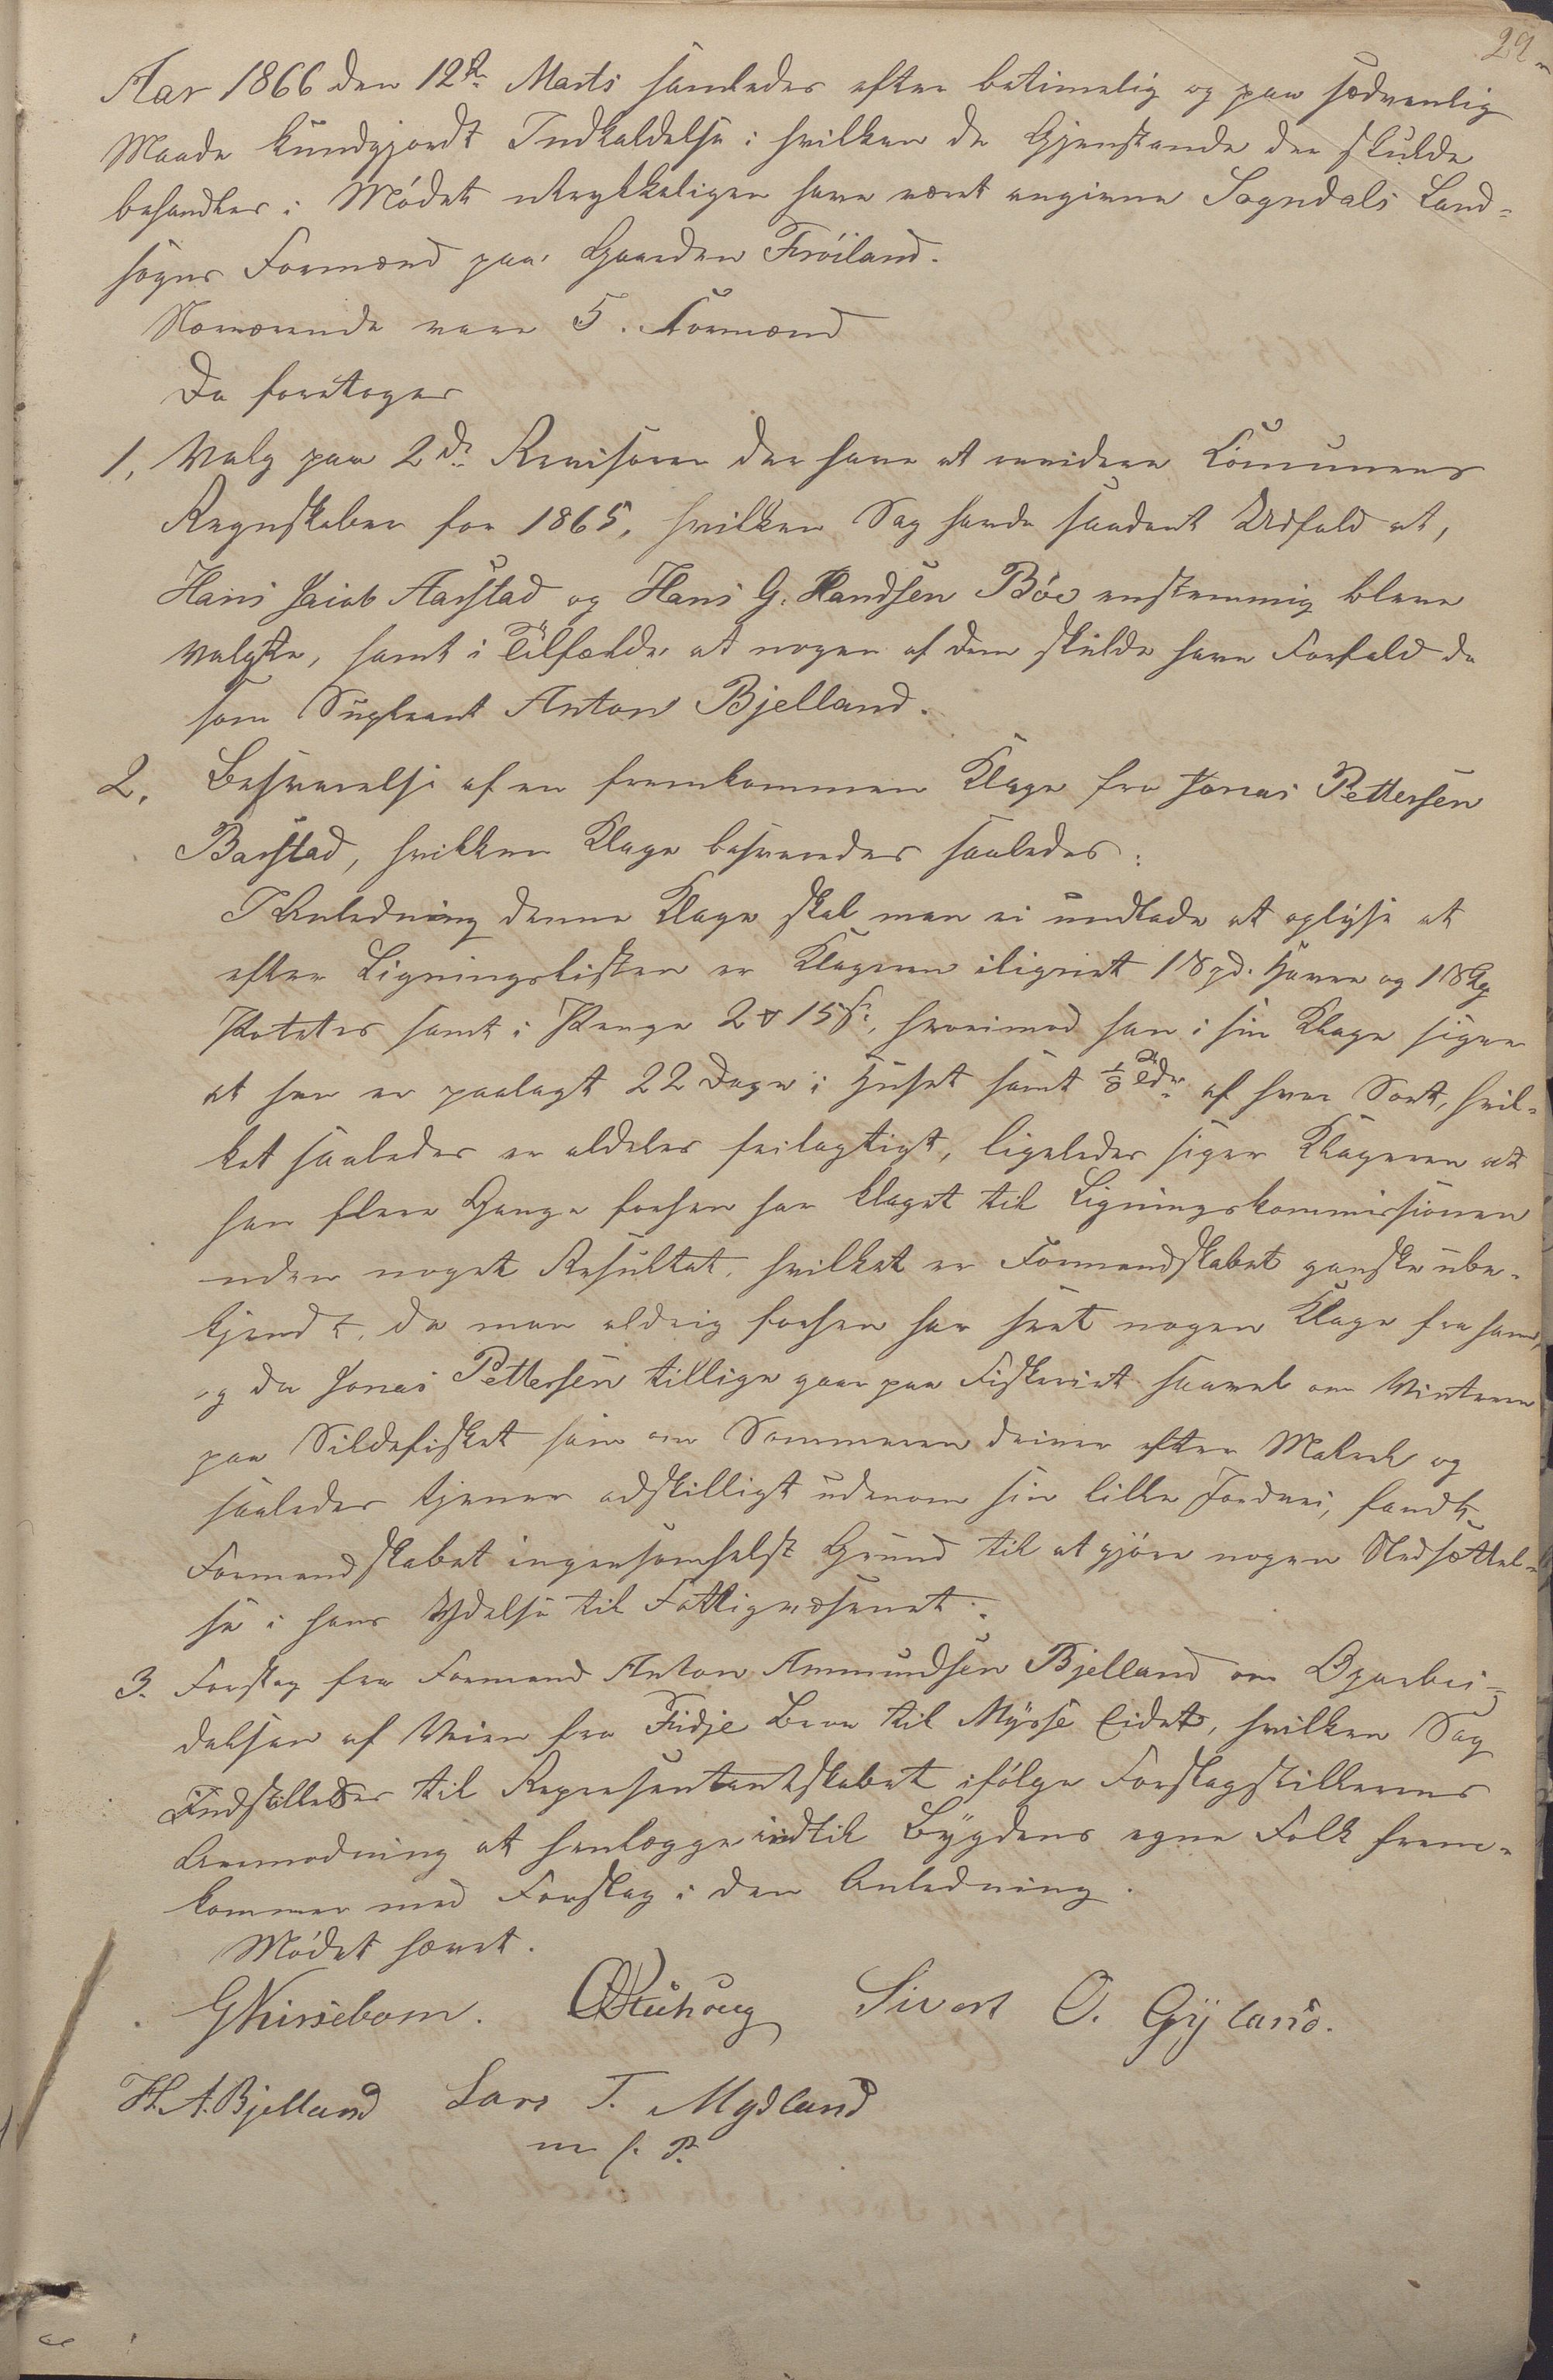 29
Aar 1866 den 12te Marts samledes efter betimelig og paa sædvanlig
Maade kundgjordt Indkaldelse i hvilken de Gjenstande der skulde
behandles i Mödet udtrykkeligen have været angivne Sogndals Land-
sogns Formænd paa Gaarden Fröiland.
Nærværende vare 5. Formænd
Da foretoges
1, Valg paa 2de Revisorer der have at revidere Communens
Regnskaber for 1865, hvilken Sag havde saadant Udfald at,
Hans Jacob Aarstad og Hans G. Randsen Böe enstemmig bleve
valgte, samt i Tilfælde at nogen af dem skulde have Forfald da
som Supleant Anton Bjelland.
2, Besvarelse af en fremkommen Klage fra Jonas Pettersen
Barstad, hvilken Klage besvaredes saaledes:
I Anledning denne Klage skal man ei undlade at oplyse at
efter Ligningslisten er Klageren ilignet 1 pd. Havre og 1
Poteter samt i Penge 2 15 s, hvorimod han i sin Klage siger
at han er paalagt 22 Dage i Huset samt 1/8 Tdr af hver Sort, hvil-
ket saaledes er aldeles feilagtigt, ligeledes siger Klageren at
han flere Gange forhen har klaget til Ligningskommissionen
uden noget Resultat, hvilket er Formandskabet ganske ube-
kjendt, da man aldrig forhen har seet nogen Klage fra ham,
og da Jonas Pettersen tillige gaar paa Fiskeriet saavel om Vinteren
paa Sildefisket som om Sommeren driver efter Makrel og
saaledes tjener adskilligt udenom sin lille Jordvei, fandt
Formandskabet ingensomhelst Grund til at gjöre nogen Nedsættel-
se i hans Ydelse til Fattigvæsenet.
3. Forslag fra Formand Anton Ammundsen Bjelland om Oparbei-
delsen af Veien fra Fidje Bro til Mysse Eidet, hvilken Sag
Indstilledes til Representantskabet ifölge Forslagstillerens
Anmodning at henlægge indtil Bygdens egne Folk frem-
kommer med Forslag i den Anledning.
Mödet hævet.
GKirsebom. Sivert O. Gyland.
H. A. Bjelland Lars T. Mydland
m f. P.